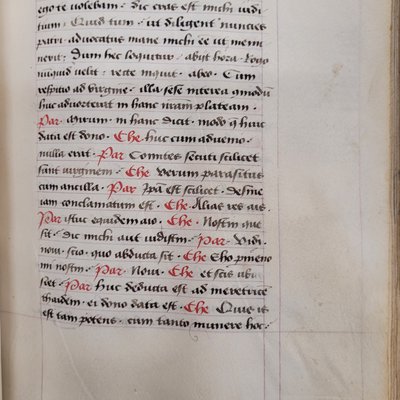 ego te volebam · dic eras est michi indi
tium · Quid tum · ut diligent nuncies
patri · advocatus mane michi ee ut memi
nerit : Dum hec loquitur · abijt hora · Rogo
nuquid velit · recte inquit · abeo · Cum
respitio ad virgine · illa sese interea comodum
huc advorterat in hanc nram plateam ·
Par · Mirum in hanc dicit · modo q huic
data est dono · Che huc cum advenio ·
nulla erat · Par Comites secuti scilicet
sunt virginem · Che Verum parasitus
cum ancilla · Par Ipa est scilicet · desine
iam conclamatum est · Che Alias res ais ·
Par istuc equidem aio · Che · Nostin que
sit · dic michi aut vidistin · Par · Vidi ·
novi · scio · quo abducta sit · Che Eho pmeno
mi nostin · Par · Novi · Che et scis ubi
siet · Par huc deducta est ad meretrice
thaidem · ei dono data est · Che Quis is
est tam potens · cum tanto munere hoc ·